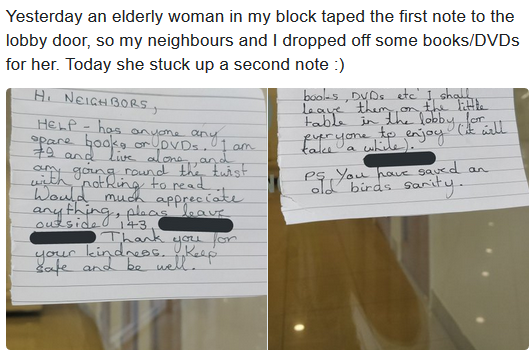 Yesterday an elderly woman in my block taped the first note to the
lobby door, so my neighbours and I dropped off some books/DVDs
for her. Today she stuck up a second note :)
Hi NEIGHBORS,
HELP - has anyone any
spare books or DVDs. I am
79 and live alone, and
am going round the twist
with nothing to read.
Would much appreciate
anything, pleas leave
outside 143,
Thank you for
your kindness. Keep
safe and be well.
books, DVDs etc I shall
leave them on the little
table in the lobby for
everyone to enjoy (it will
take a while).
PS You have saved an
old birds sanity.